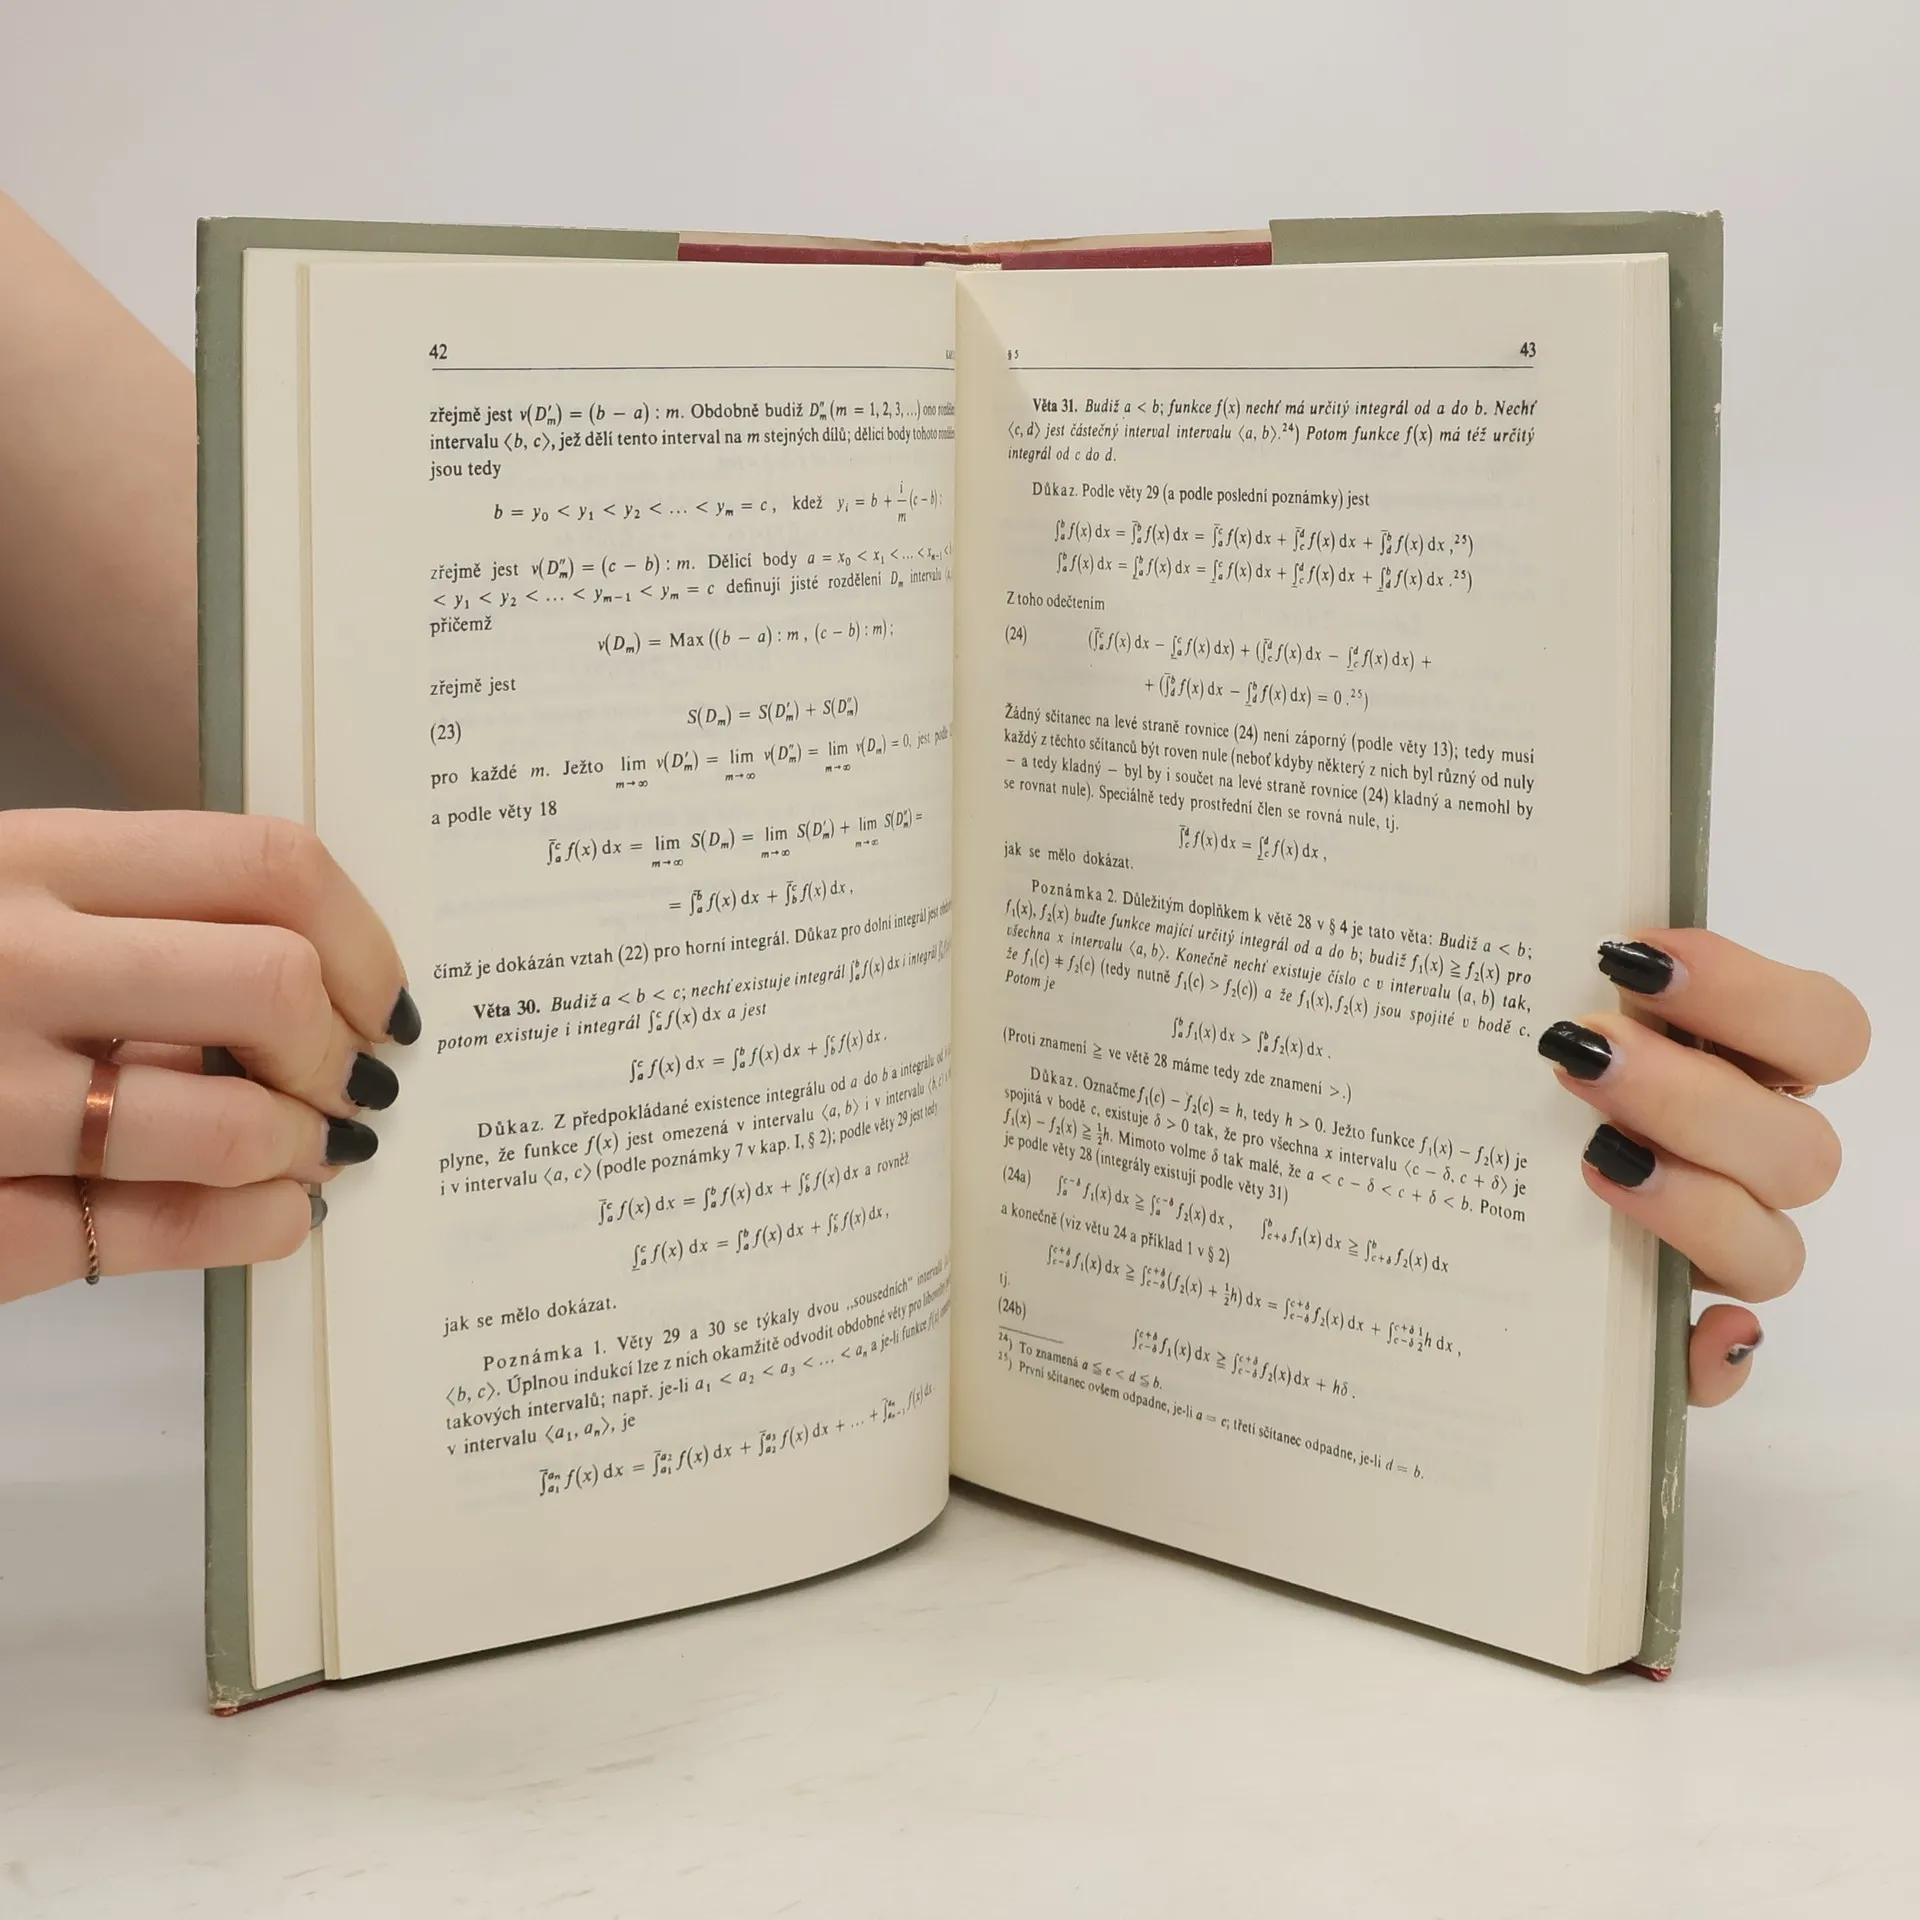 42
zřejmě jest ν(D′ₘ) = (b − a) : m. Obdobně budiž D″ₘ (m = 1, 2, 3, ...) ono
intervalu ⟨b, c⟩, jež dělí tento interval na m stejných dílů; dělicí body tohoto
jsou tedy
b = y₀ < y₁ < y₂ < ... < yₘ = c, kdež yᵢ = b + i/m (c − b);
zřejmě jest ν(D″ₘ) = (c − b) : m. Dělicí body a = x₀ < x₁ < ... < xₘ₋₁ <
< y₁ < y₂ < ... < yₘ₋₁ < yₘ = c definují jisté rozdělení Dₘ intervalu
přičemž
ν(Dₘ) = Max ((b − a) : m, (c − b) : m);
zřejmě jest
(23) S(Dₘ) = S(D′ₘ) + S(D″ₘ)
pro každé m. Ježto lim_{m→∞} ν(D′ₘ) = lim_{m→∞} ν(D″ₘ) = lim_{m→∞} ν(Dₘ) = 0, jest podle
a podle věty 18
∫̄ₐᶜ f(x) dx = lim_{m→∞} S(Dₘ) = lim_{m→∞} S(D′ₘ) + lim_{m→∞} S(D″ₘ) =
= ∫̄ₐᵇ f(x) dx + ∫̄_b^c f(x) dx,
čímž je dokázán vztah (22) pro horní integrál. Důkaz pro dolní integrál jest
Věta 30. Budiž a < b < c; nechť existuje integrál ∫ₐᵇ f(x) dx i integrál
potom existuje i integrál ∫ₐᶜ f(x) dx a jest
∫ₐᶜ f(x) dx = ∫ₐᵇ f(x) dx + ∫_b^c f(x) dx.
Důkaz. Z předpokládané existence integrálu od a do b a integrálu od
plyne, že funkce f(x) jest omezená v intervalu ⟨a, b⟩ i v intervalu ⟨b, c⟩
i v intervalu ⟨a, c⟩ (podle poznámky 7 v kap. I, § 2); podle věty 29 jest tedy
∫̄ₐᶜ f(x) dx = ∫ₐᵇ f(x) dx + ∫_b^c f(x) dx a rovněž
∫̲ₐᶜ f(x) dx = ∫ₐᵇ f(x) dx + ∫_b^c f(x) dx,
jak se mělo dokázat.
Poznámka 1. Věty 29 a 30 se týkaly dvou „sousedních“ intervalů
⟨b, c⟩. Úplnou indukcí lze z nich okamžitě odvodit obdobné věty pro libovolný
takových intervalů; např. je-li a₁ < a₂ < a₃ < ... < aₙ a je-li funkce f(x)
v intervalu ⟨a₁, aₙ⟩, je
∫̄_{a₁}^{aₙ} f(x) dx = ∫̄_{a₁}^{a₂} f(x) dx + ∫̄_{a₂}^{a₃} f(x) dx + ... + ∫̄_{aₙ₋₁}^{aₙ} f(x) dx.
§ 5 43
Věta 31. Budiž a < b; funkce f(x) nechť má určitý integrál od a do b. Nechť
⟨c, d⟩ jest částečný interval intervalu ⟨a, b⟩.²⁴) Potom funkce f(x) má též určitý
integrál od c do d.
Důkaz. Podle věty 29 (a podle poslední poznámky) jest
∫ₐᵇ f(x) dx = ∫̄ₐᵇ f(x) dx = ∫̄ₐᶜ f(x) dx + ∫̄_c^d f(x) dx + ∫̄_d^b f(x) dx,²⁵)
∫ₐᵇ f(x) dx = ∫̲ₐᵇ f(x) dx = ∫̲ₐᶜ f(x) dx + ∫̲_c^d f(x) dx + ∫̲_d^b f(x) dx.²⁵)
Z toho odečtením
(24) (∫̄ₐᶜ f(x) dx − ∫̲ₐᶜ f(x) dx) + (∫̄_c^d f(x) dx − ∫̲_c^d f(x) dx) +
+ (∫̄_d^b f(x) dx − ∫̲_d^b f(x) dx) = 0.²⁵)
Žádný sčítanec na levé straně rovnice (24) není záporný (podle věty 13); tedy musí
každý z těchto sčítanců být roven nule (neboť kdyby některý z nich byl různý od nuly
– a tedy kladný – byl by i součet na levé straně rovnice (24) kladný a nemohl by
se rovnat nule). Speciálně tedy prostřední člen se rovná nule, tj.
∫̄_c^d f(x) dx = ∫̲_c^d f(x) dx,
jak se mělo dokázat.
Poznámka 2. Důležitým doplňkem k větě 28 v § 4 je tato věta: Budiž a < b;
f₁(x), f₂(x) buďte funkce mající určitý integrál od a do b; budiž f₁(x) ≧ f₂(x) pro
všechna x intervalu ⟨a, b⟩. Konečně nechť existuje číslo c v intervalu (a, b) tak,
že f₁(c) ≠ f₂(c) (tedy nutně f₁(c) > f₂(c)) a že f₁(x), f₂(x) jsou spojité v bodě c.
Potom je
∫ₐᵇ f₁(x) dx > ∫ₐᵇ f₂(x) dx.
(Proti znamení ≧ ve větě 28 máme tedy zde znamení >.)
Důkaz. Označme f₁(c) − f₂(c) = h, tedy h > 0. Ježto funkce f₁(x) − f₂(x) je
spojitá v bodě c, existuje δ > 0 tak, že pro všechna x intervalu ⟨c − δ, c + δ⟩ je
f₁(x) − f₂(x) ≧ ½h. Mimoto volme δ tak malé, že a < c − δ < c + δ < b. Potom
je podle věty 28 (integrály existují podle věty 31)
(24a) ∫ₐ^{c−δ} f₁(x) dx ≧ ∫ₐ^{c−δ} f₂(x) dx, ∫_{c+δ}^b f₁(x) dx ≧ ∫_{c+δ}^b f₂(x) dx
a konečně (viz větu 24 a příklad 1 v § 2)
∫_{c−δ}^{c+δ} f₁(x) dx ≧ ∫_{c−δ}^{c+δ} (f₂(x) + ½h) dx = ∫_{c−δ}^{c+δ} f₂(x) dx + ∫_{c−δ}^{c+δ} ½h dx,
tj.
(24b) ∫_{c−δ}^{c+δ} f₁(x) dx ≧ ∫_{c−δ}^{c+δ} f₂(x) dx + hδ.
²⁴) To znamená a ≦ c < d ≦ b.
²⁵) První sčítanec ovšem odpadne, je-li a = c; třetí sčítanec odpadne, je-li d = b.